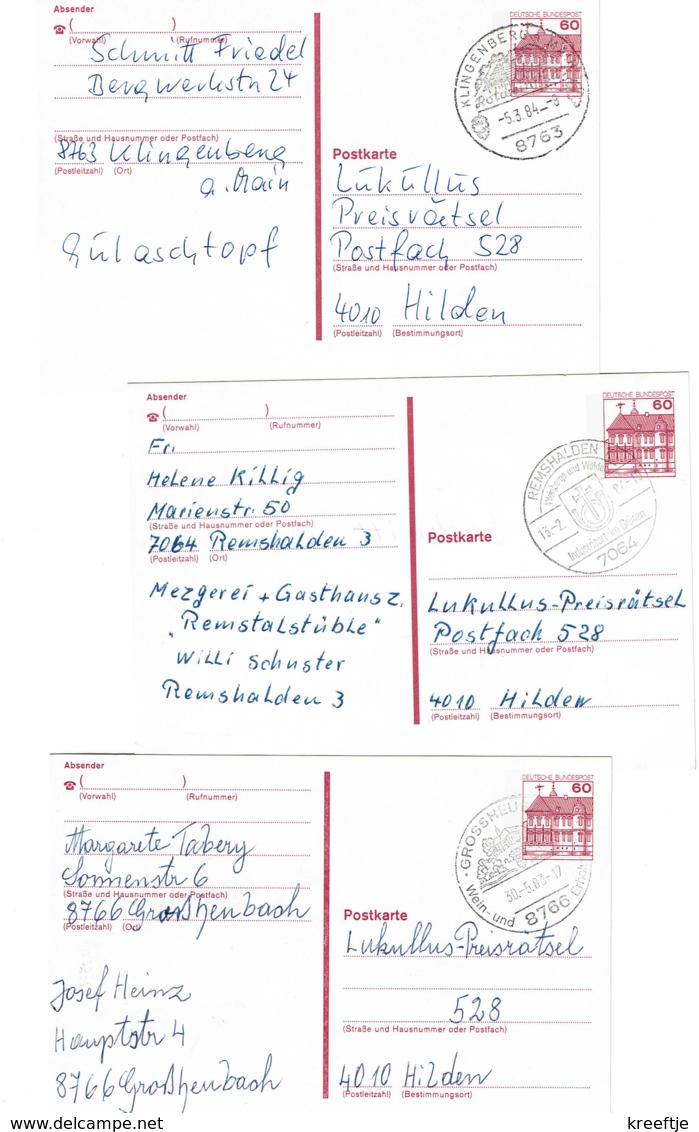 Absender
☎ ( )
(Vorwahl) (Rufnummer)
Schmitt Friedel
Bergwerkstr 24
(Straße und Hausnummer oder Postfach)
8763 Klingenberg
(Postleitzahl) (Ort)
a. Main
Gulaschtopf
DEUTSCHE BUNDESPOST
60
KLINGENBERG
-5.3.84 -8
8763
Postkarte
Lukullus
Preisrätsel
Postfach 528
(Straße und Hausnummer oder Postfach)
4010 Hilden
(Postleitzahl) (Bestimmungsort)
Absender
☎ ( )
(Vorwahl) (Rufnummer)
Fr.
Helene Killig
Marienstr. 50
(Straße und Hausnummer oder Postfach)
7064 Remshalden 3
(Postleitzahl) (Ort)
Mezgerei + Gasthaus z.
„Remstalstüble"
Willi Schuster
Remshalden 3
DEUTSCHE BUNDESPOST
60
REMSHALDEN
13.-2.
7064
Postkarte
Lukullus-Preisrätsel
Postfach 528
(Straße und Hausnummer oder Postfach)
4010 Hilden
(Postleitzahl) (Bestimmungsort)
Absender
☎ ( )
(Vorwahl) (Rufnummer)
Margarete Tabery
Sonnenstr 6
(Straße und Hausnummer oder Postfach)
8766 Großheubach
(Postleitzahl) (Ort)
Josef Heinz
Hauptstr 4
8766 Großheubach
DEUTSCHE BUNDESPOST
60
GROSSHEU
30.-5.83-17
Wein- und
8766
Postkarte
Lukullus-Preisrätsel
528
(Straße und Hausnummer oder Postfach)
4010 Hilden
(Postleitzahl) (Bestimmungsort)
kreeftje